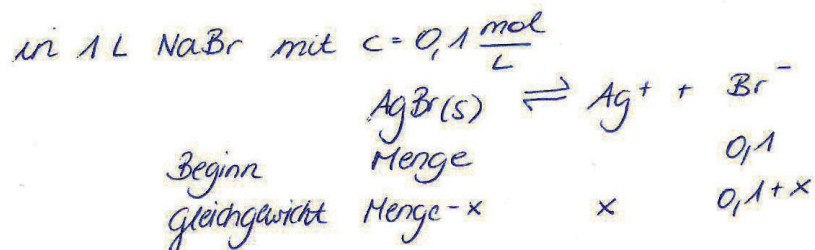 in 1 L NaBr mit c = 0,1 mol/L
AgBr(s) ⇌ Ag⁺ + Br⁻
Beginn Menge 0,1
Gleichgewicht Menge-x x 0,1+x